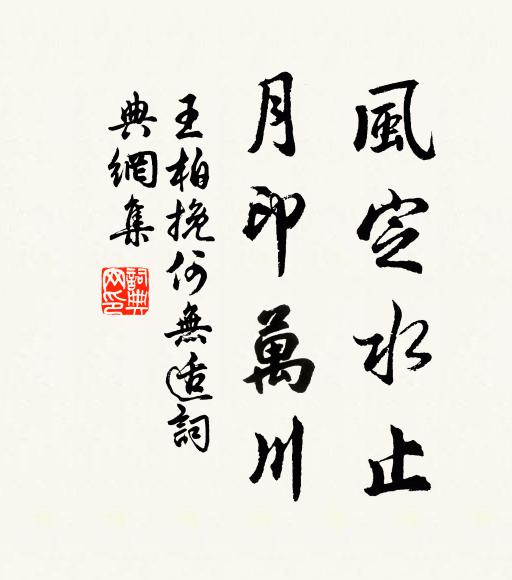 風定水止
月印萬川
王柏挽何無適詞
典網集
詞典
网印